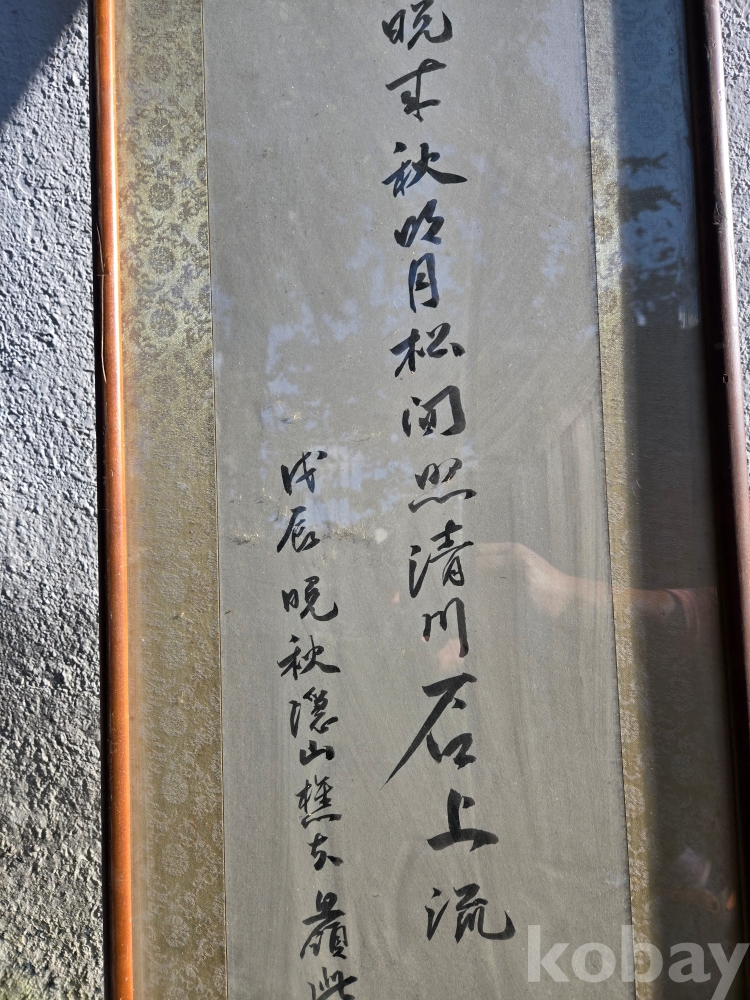 晚来秋明月松间照清川石上流
戊辰晚秋隱山樵夫
kobay